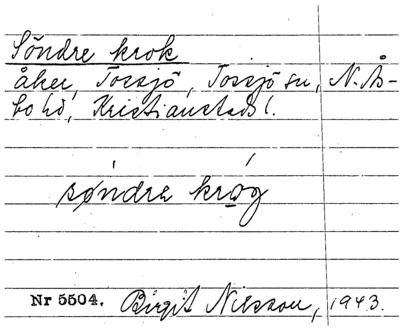 Söndre krok
åker, Torsjö, Torsjö sn, N. Ås-
bo hd, Kristianstads l.
søndre krøg
Nr 5504. Birgit Nilsson, 1943.